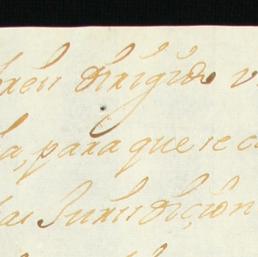 dirigido v
la, para que se c
las Jurisdicçion